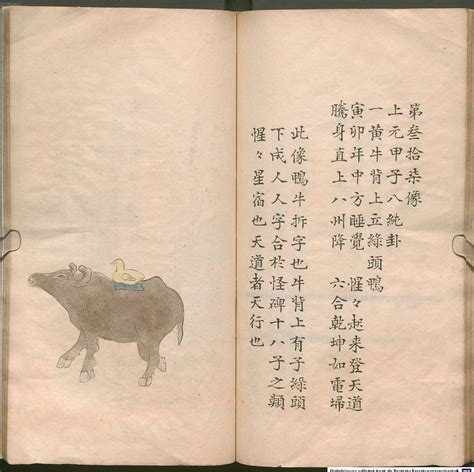 第叁拾柒像
上元甲子八純卦
一黃牛背上立綠頭鴨
寅卯年中方睡覺 惺々起來登天道
騰身直上八州降 六合乾坤如電埽
此像鴨牛拆字也牛背上有子綠頭
下成人人字合於怪碑十八子之類
惺々星宿也天道者天行也